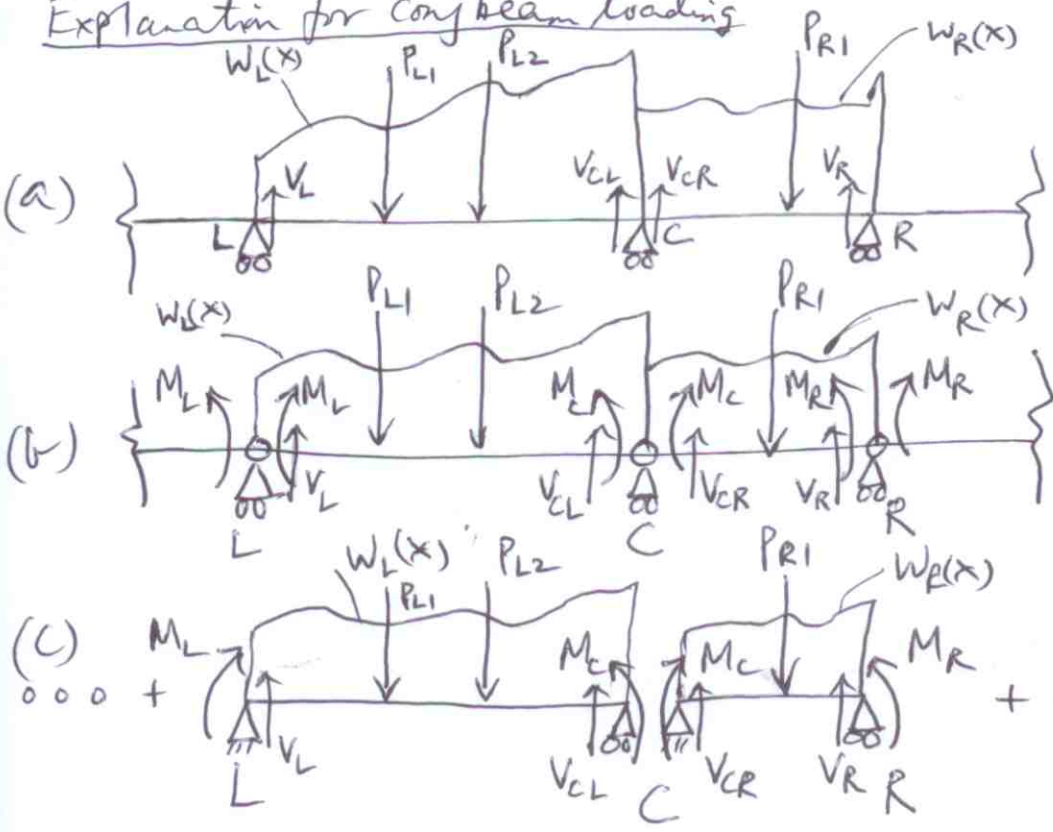 Explanation for conj beam loading
W_L(x) P_L1 P_L2 P_R1 W_R(x)
(a) V_L V_CL V_CR V_R
L C R
W_L(x) P_L1 P_L2 P_R1 W_R(x)
M_L M_L M_C M_C M_R M_R
(b) V_L V_CL V_CR V_R
L C R
W_L(x) P_L1 P_L2 P_R1 W_R(x)
(c) M_L M_C M_C M_R
+ +
V_L V_CL V_CR V_R
L C R